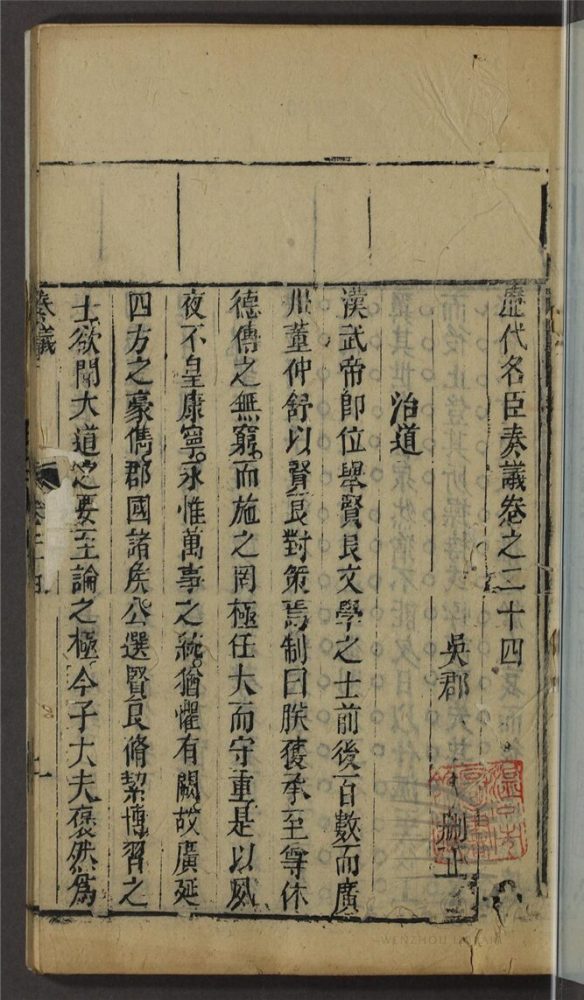 歷代名臣奏議卷之二十四
吳郡 刪正
治道
漢武帝卽位舉賢良文學之士前後百數而廣
川董仲舒以賢良對策焉制曰朕獲承至尊休
德傳之無窮而施之罔極任大而守重是以夙
夜不皇康寧永惟萬事之統猶懼有闕故廣延
四方之豪儁郡國諸侯公選賢良脩絜博習之
士欲聞大道之要至論之極今子大夫褎然爲
奏議
WENZHOU LIBRARY